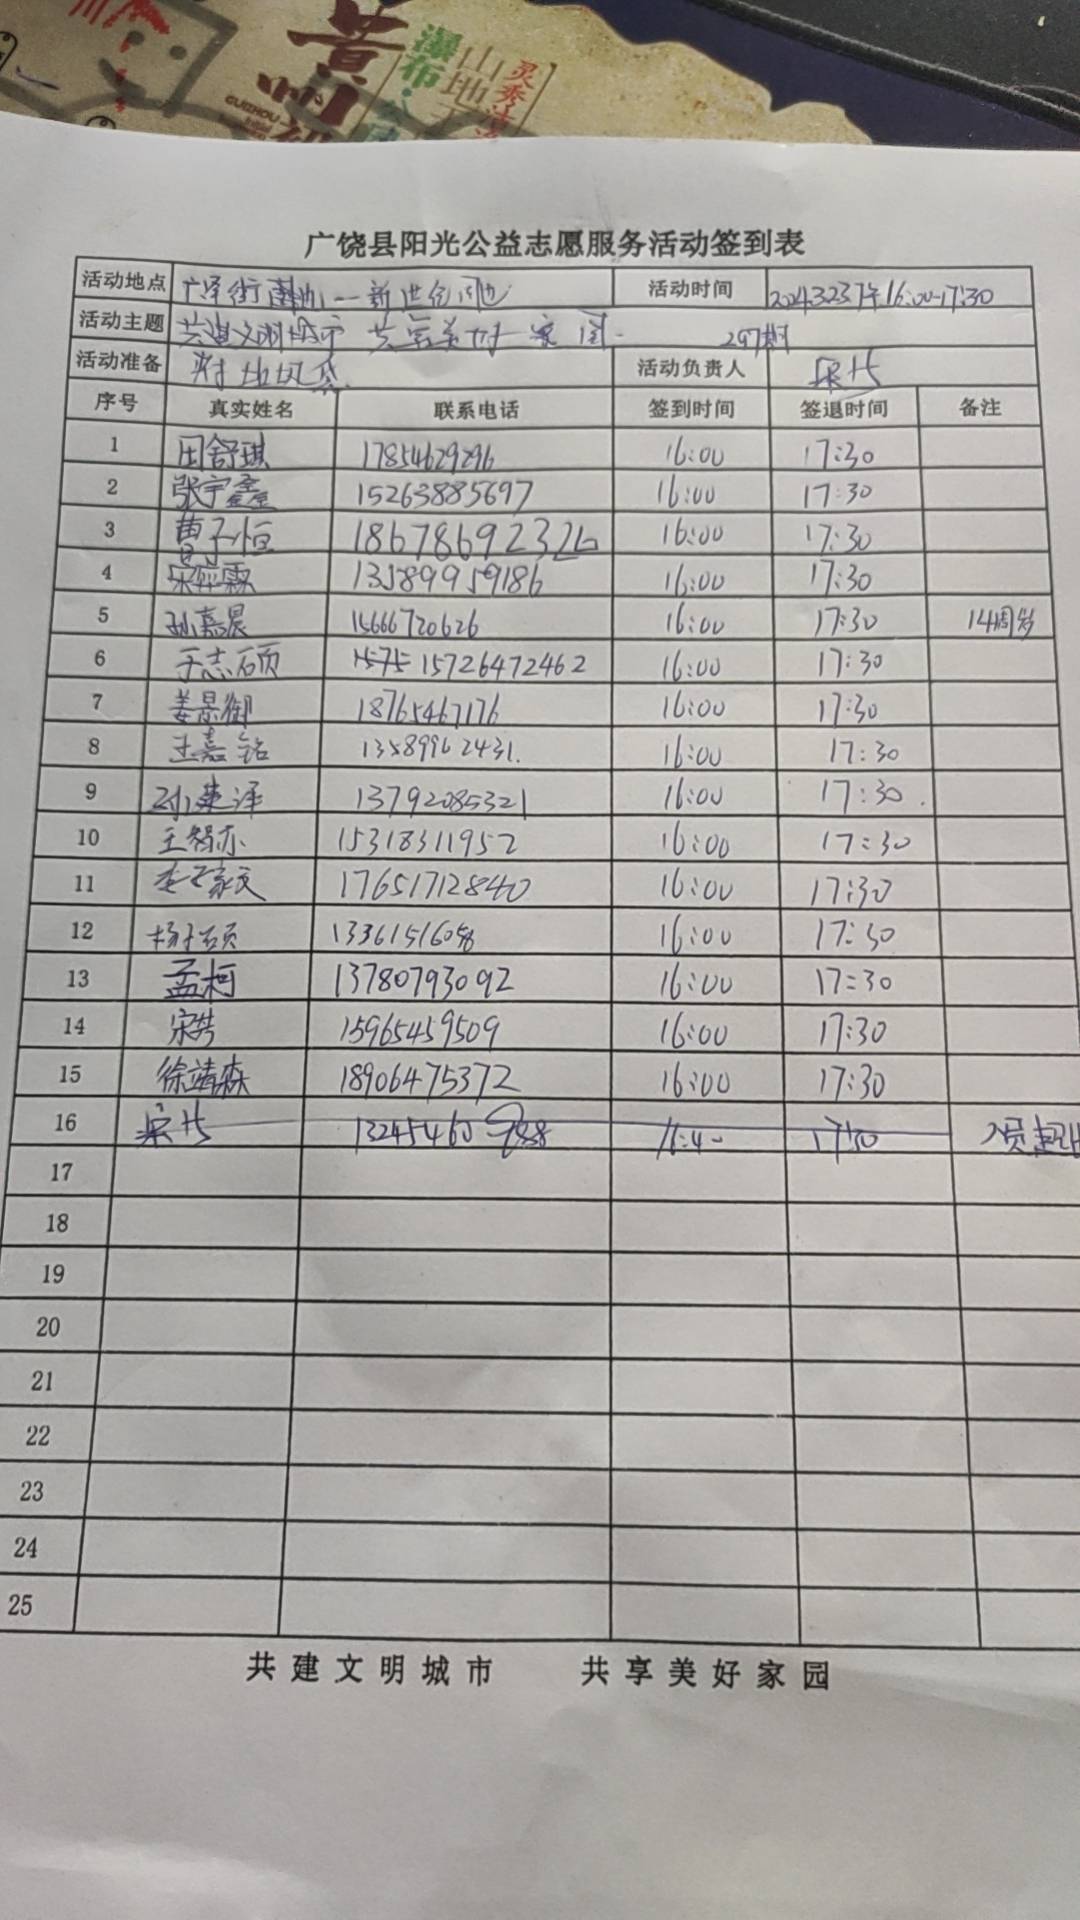 贵州
GUIZHOU
瀑布
山地
灵秀
广饶县阳光公益志愿服务活动签到表
活动地点 广泽街 一新世纪 活动时间 16:00-17:30
活动主题 共建文明城市 共享美好家园. 297期
活动准备 活动负责人
序号 真实姓名 联系电话 签到时间 签退时间 备注
1 田舒琪 17854629296 16:00 17:30
2 张宇鑫 15263885697 16:00 17:30
3 曹子恒 18678692326 16:00 17:30
4 宋弈霖 13589959186 16:00 17:30
5 孙嘉晨 15666720626 16:00 17:30 14周岁
6 于志硕 15726472462 16:00 17:30
7 姜景御 18765467176 16:00 17:30
8 王嘉铭 13589962431. 16:00 17:30
9 孙建泽 13792085321 16:00 17:30.
10 王智亦 15318311952 16:00 17:30
11 家文 17651712840 16:00 17:30
12 杨硕 13361516058 16:00 17:30
13 孟柯 13780793092 16:00 17:30
14 宋芸 15965459509 16:00 17:30
15 徐靖森 18906475372 16:00 17:30
16 17:30
17
18
19
20
21
22
23
24
25
共建文明城市 共享美好家园